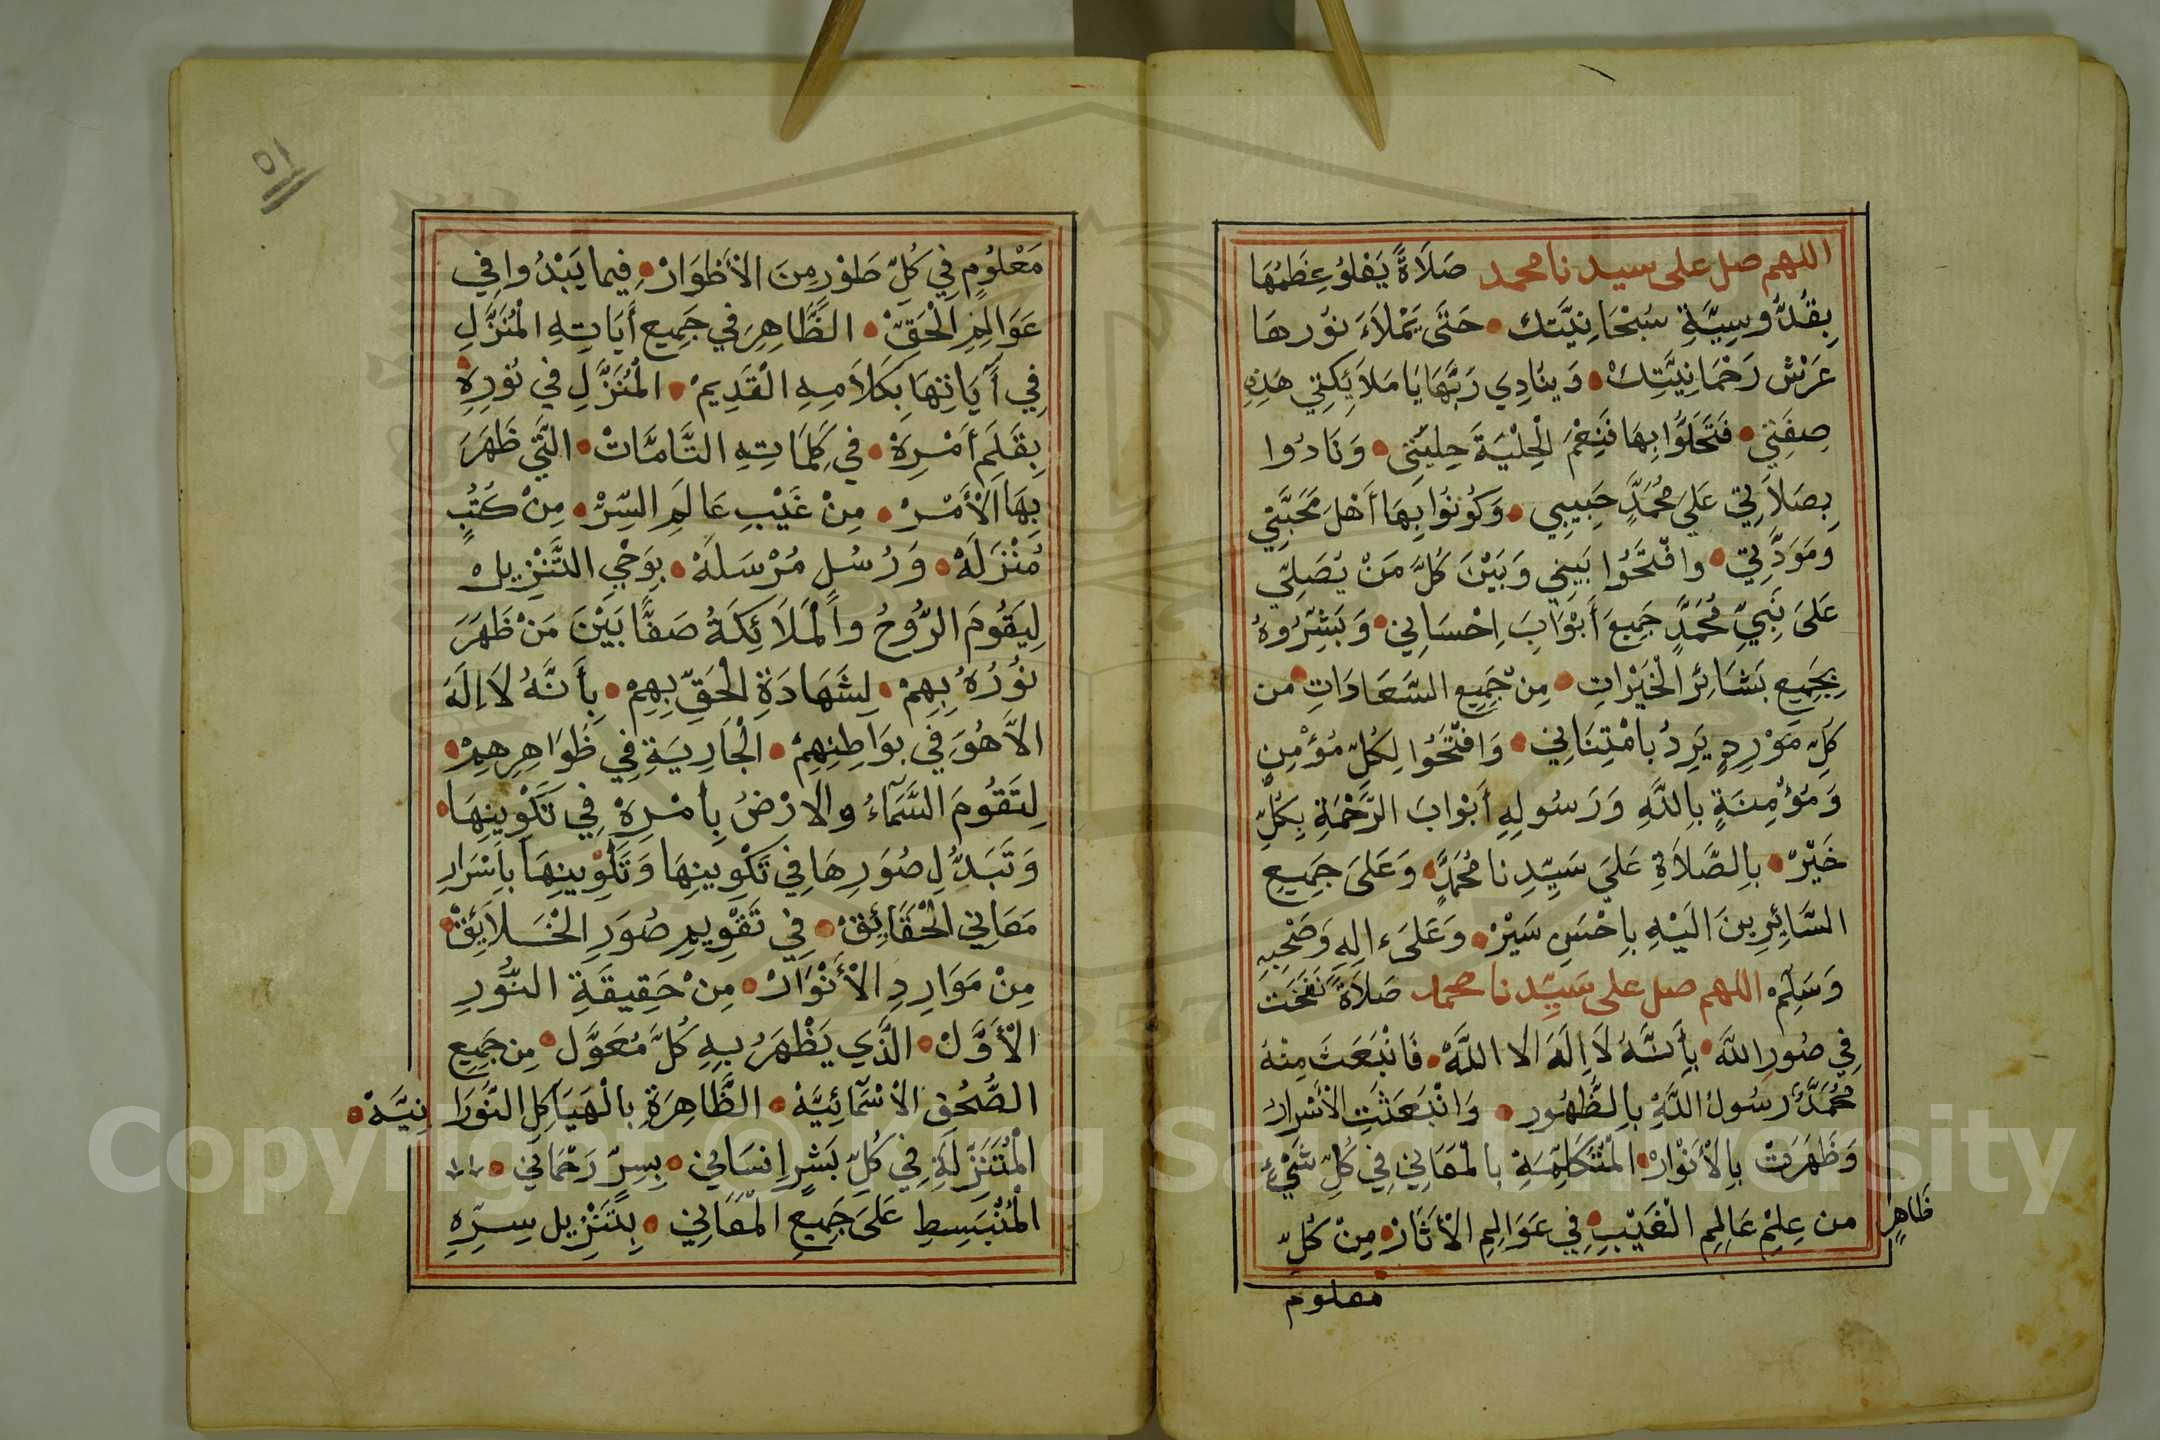 اللهم صل على سيدنا محمد صَلَاةً يَعْلُوُ عِظَمُهَا
بِقُدُّوسِيَّةِ سُبْحَانِيَّتِكَ حَتَّى يَمْلَاءَ نُورهَا
عَرْشَ رَحْمَانِيَّتِكْ وَينَادِي رَبُّهَا يَا مَلَائِكَتِي هَذِهِ
صِفَتِي فَتَحَلَّوُا بِهَا فَنِعْمَ الْحِلْيَةَ حِلْيَتِي وَنَادُوا
بِصَلَاتِي عَلَى مُحَمَّدٍ حَبِيبِي وَكُونُوا بِهَا أَهْلَ مَحَبَّتِي
وَمَوَدَّتِي وافْتَحُوا بَينِي وَبَيْنَ كُلَّ مَنْ يُصَلِّي
عَلَى نَبِيِّ مُحَمَّدٍ جَمِيعَ أَبْوَابَ اِحْسَانِي وَبَشِّرُوهُ
بِجَمِيعِ بَشَائِرَ الْخَيْرَاتِ مِنْ جَمِيعِ السَّعَادَاتِ من
كُلِّ مَوْرِدٍ يَرِدُ بامْتِنَانِي وَافْتَحُوا لِكُلِّ مُؤْمِنٍ
وَمُؤْمِنَةٍ بِاللَّهِ وَرَسُولِهِ أَبْوابَ الرَّحْمَةِ بِكُلِّ
خَيْرْ بِالصَّلَاةِ عَلَى سَيِّدِنا مُحَمَّدٍ وَعَلَى جَمِيعِ
السَّائِرِينَ الَيْهِ بِاحْسَنِ سَيْرْ وَعَلَىءالِهِ وَصَحْبِهِ
وَسَلِّمْ اللهم صل على سَيِّدنا محمد صَلَاةً نَفَخَتَ
فِي صُورِ اللَّهِ بِأَنَّهُ لَا اِلَهَ الا اللَّهْ فَانْبَعَثَ مِنْهُ
مُحَمَّدٌ رَسُولُ اللَّهِ بِالظُّهُورِ وَانْبَعَثَتِ الْأَسْرَارُ
وَظَهَرَتْ بِالْأَنْوَارْ الْمُتَكَلِّمَةِ بالْمَعَانِي فِي كُلِّ شَيْءٍ
ظَاهِرٍ
من عِلْمِ عَالِمِ الْغَيْبِ فِي عَوَالِمِ الْأَثَارْ مِنْ كُلِّ
معلوم
٥١
مَعْلُومٍ فِي كُلِّ طَوْرٍ مِنَ الْأَطْوَارْ فِيما يَبْدُوا فِي
عَوَالِمِ الْحَقِّ الظَّاهِرِ فِي جَمِيعِ أَيَاتِهِ الْمُنَزَّلِ
فِي أَيَاتِهَا بِكَلَامِهِ الْقَدِيمْ الْمُنَزَّلِ فِي نُورِهِ
بِقَلَمِ أَمْرِهْ فِي كَلِمَاتِهِ التَّامَّاتْ الَّتِي ظَهَرَ
بِهَا الْأَمْرْ مِنْ غَيْبِ عَالَمِ السِّرْ مِنْ كُتُبٍ
مُنْزَلَهْ وَرُسُلٍ مُرْسَلَهْ بِوَحْيِ التَّنْزِيلْ
لِيَقُومَ الرُّوحُ وَالْمَلَائِكَةُ صَفًّا بَيْنَ مَنْ ظَهَرَ
نُورُهُ بِهِمْ لِشَهَادَةِ الْحَقِّ بِهِمْ بِأَنَّهُ لَا اِلَهَ
الَّا هُوَ فِي بوَاطِنِهِمْ الْجَارِيَةِ فِي ظَوَاهِرِهِمْ
لِتَقُومَ السَّمَآءُ والارْضُ بِأَمْرِهِ فِي تَكْوِينِهَا
وَتَبَدُّلِ صُوَرِهَا فِي تَكْوِينِهَا وَتَلْوِينِهَا بِاسْرَارِ
مَعَانِي الْحَقَائِقْ فِي تَقْوِيمِ صُوَرِ الْخَلَائِقْ
مِنْ مَوَارِدِ الْأَنْوَارْ مِنْ حَقِيقَةِ النُّورِ
الْأَوَّلْ الَّذِي يَظْهَرُ بِهِ كُلَّ مُعَوَّلْ مِن جَمِيعِ
الصُّحُفِ الْأَسْمَآئِيَّهْ الظَّاهِرَةِ بالْهَيَاكِلِ النُّورَانِيَّهْ
الْمُتَنَزِّلَةِ فِي كُلِّ بَشَرٍ اِنسَانِي بِسِرِّ رَحْمَانِي
الْمُنْبَسِطِ عَلَى جَمِيعِ الْمَعَانِي بِتَنْزِيل سِرِّهِ
Copyright © King Saud University